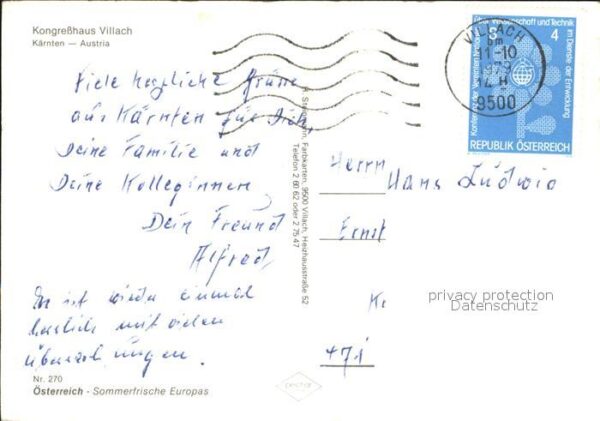 Kongreßhaus Villach
Kärnten — Austria
Viele herzliche Grüße
aus Kärnten für Dich,
Deine Familie und
Deine Kolleginnen
Dein Freund
Alfred,
Es ist wieder einmal
herrlich mit vielen
Überraschungen.
Nr. 270
Österreich - Sommerfrische Europas
Farbkarten, 9500 Villach, Heizhausstraße 52
Telefon 2 60 62 oder 2 75 47
VILLACH
11-10
9500
Konferenz der Vereinten
über Wissenschaft und Technik
im Dienste der Entwicklung
S 4
REPUBLIK ÖSTERREICH
Herrn
Hans Ludwig
Ernst
privacy protection
Datenschutz
471